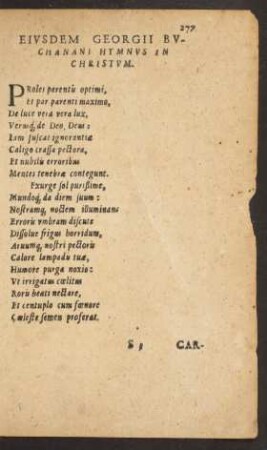 277
EIVSDEM GEORGII BV-
CHANANI HYMNVS IN
CHRISTVM.
PRoles parentis optimi,
Et par parenti maximo,
De luce vera vera lux,
Verusq́, de Deo, Deus:
En fuscat ignorantiæ
Caligo crassa pectora,
Et nubilis erroribus
Mentes tenebræ contegunt.
Exurge sol purissime,
Mundoq́, da diem suum:
Nostramq́, noctem illuminans
Erroris vmbram discute
Dissolue frigus horridum,
Aruumq́, nostri pectoris
Calore lampadis tuæ,
Humore purga noxio:
Vt irrigatus cœlitus
Roris beati nectare,
Et centuplo cum fœnore
Cœleste semen proferat.
S
CAR-